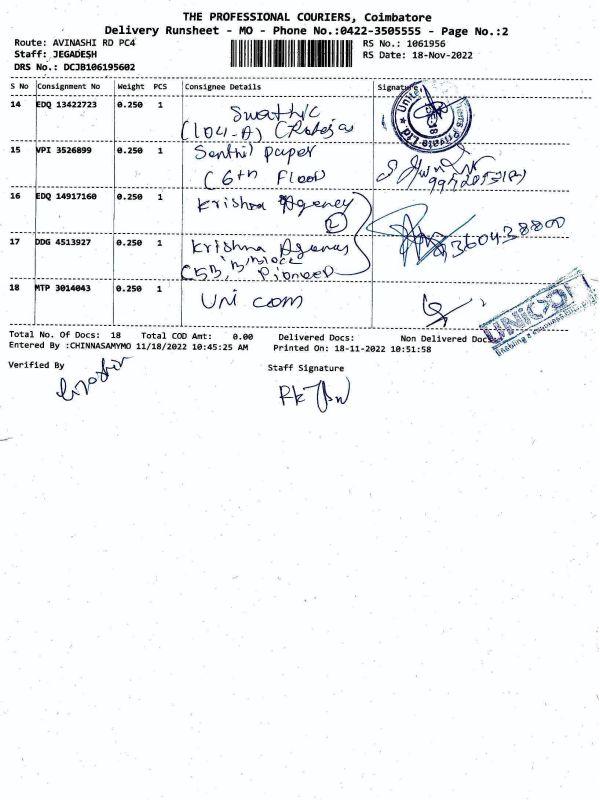 THE PROFESSIONAL COURIERS, Coimbatore
Delivery Runsheet - MO - Phone No.:0422-3505555 - Page No.:2
Route: AVINASHI RD PC4
RS No.: 1061956
Staff: JEGADESH
RS Date: 18-Nov-2022
DRS No.: DCJB106195602
S No Consignment No Weight PCS Consignee Details Signature
14 EDQ 13422723 0.250 1
(104-A)
15 VPI 3526899 0.250 1 Senthil Paper
(6th Floor
16 EDQ 14917160 0.250 1 Krishna Agency
2
9360438800
17 DDG 4513927 0.250 1 Krishna Agency
Pioneer
18 MTP 3014043 0.250 1 Uni com
UNICOM
Total No. Of Docs: 18 Total COD Amt: 0.00 Delivered Docs: Non Delivered Docs
Entered By :CHINNASAMYMO 11/18/2022 10:45:25 AM Printed On: 18-11-2022 10:51:58
Verified By
Staff Signature